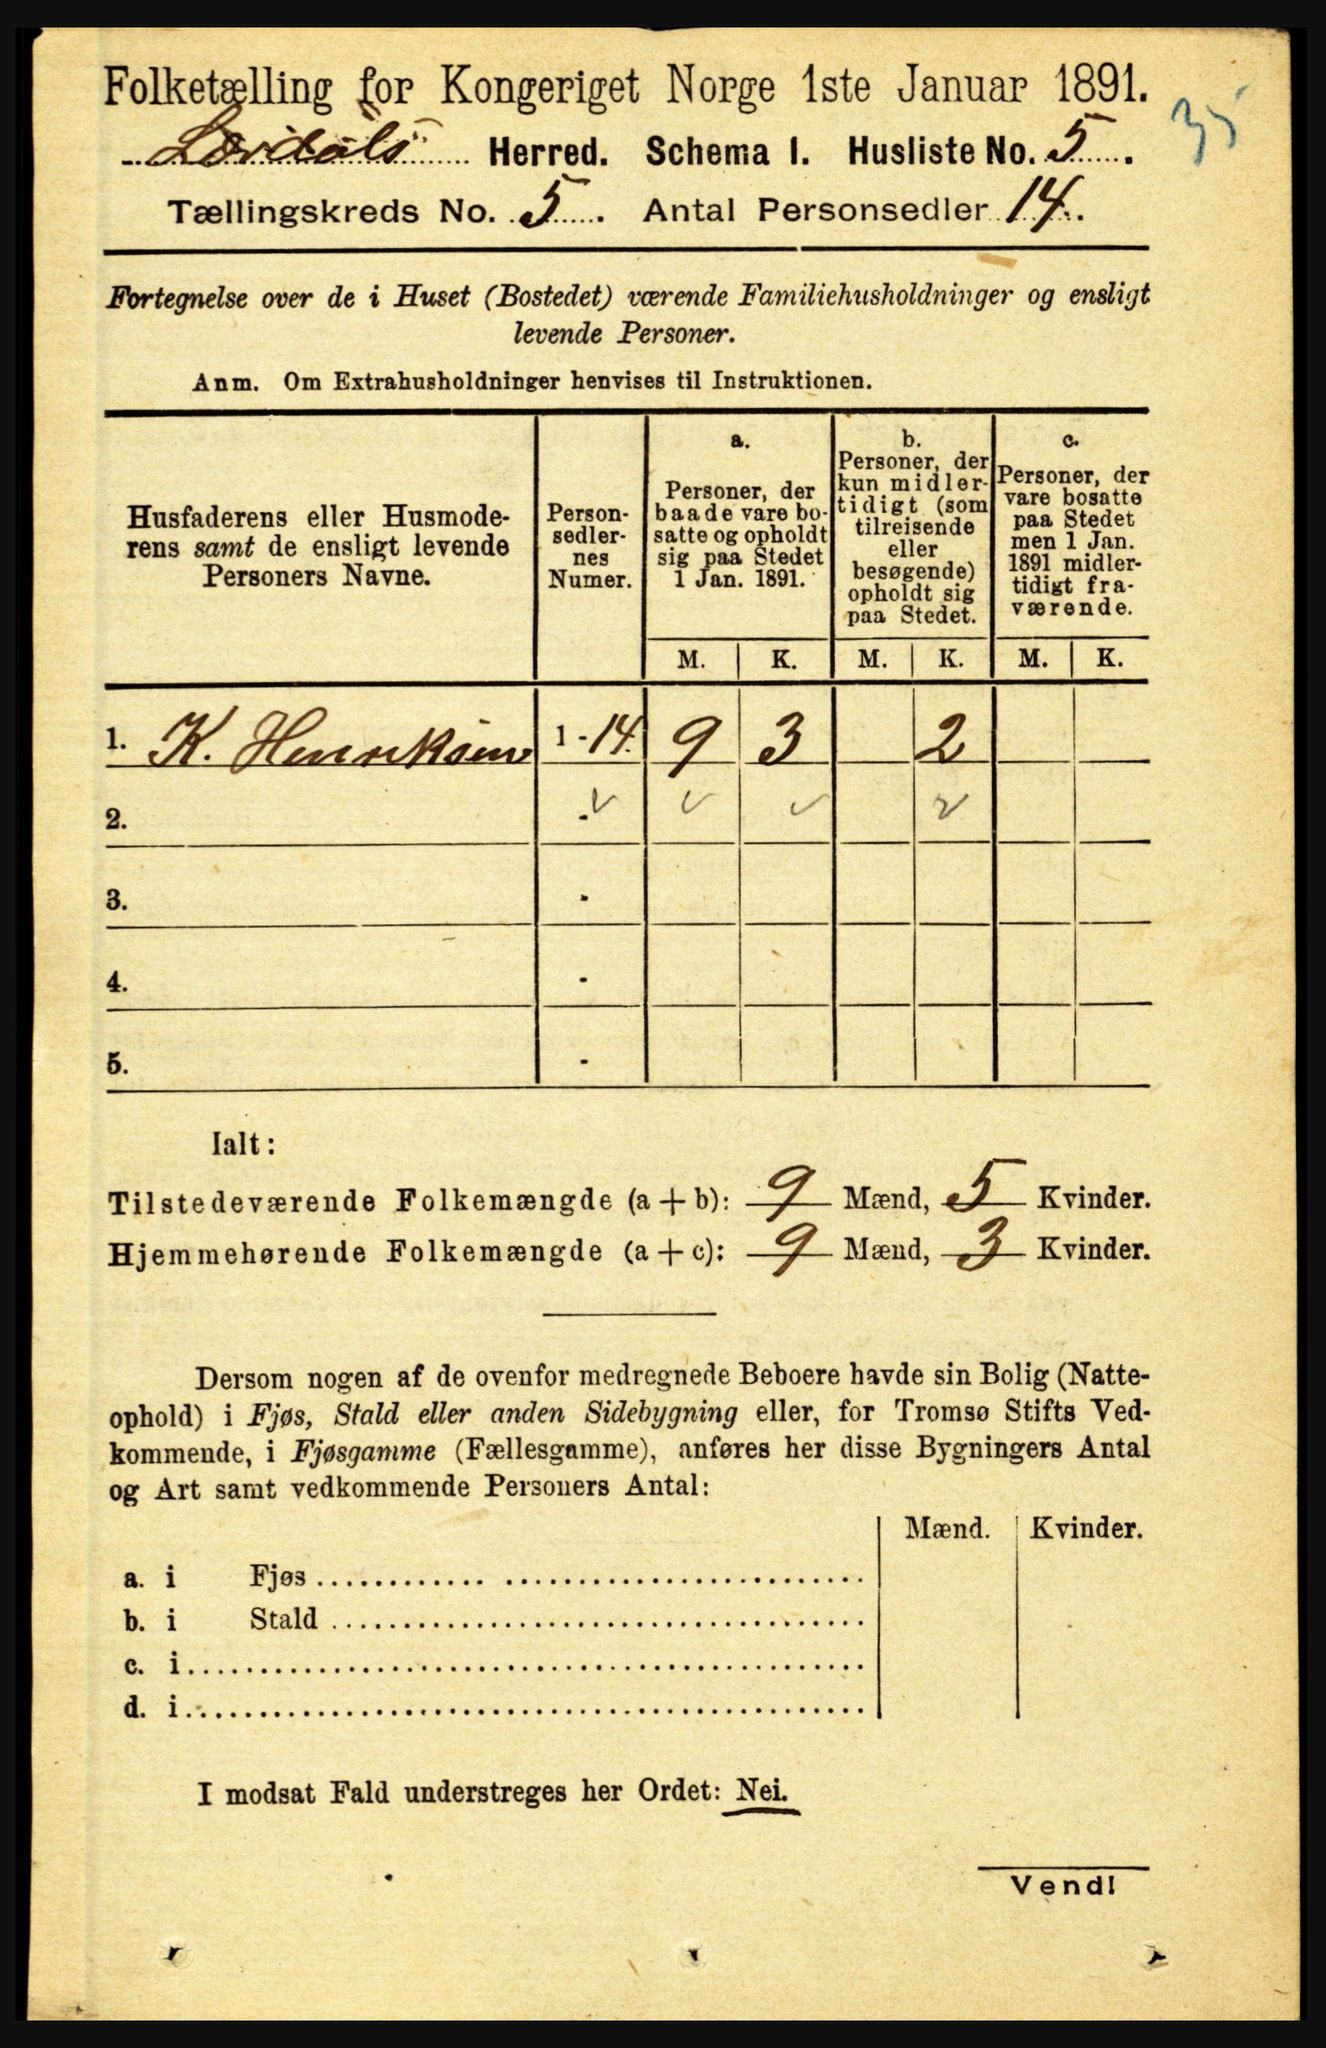 Folketælling for Kongeriget Norge 1ste Januar 1891.
35
Herred. Schema I. Husliste No. 5.
Tællingskreds No. 5. Antal Personsedler 14.
Fortegnelse over de i Huset (Bostedet) værende Familiehusholdninger og ensligt
levende Personer.
Anm. Om Extrahusholdninger henvises til Instruktionen.
Husfaderens eller Husmode-
rens samt de ensligt levende
Personers Navne.
Person-
sedler-
nes
Numer.
a.
Personer, der
baade vare bo-
satte og opholdt
sig paa Stedet
1 Jan. 1891.
b.
Personer, der
kun midler-
tidigt (som
tilreisende
eller
besøgende)
opholdt sig
paa Stedet.
c.
Personer, der
vare bosatte
paa Stedet
men 1 Jan.
1891 midler-
tidigt fra-
værende.
M. K. M. K. M. K.
1. K. Henriksen 1 - 14. 9 3 2
2. -
3. -
4. -
5. -
Ialt:
Tilstedeværende Folkemængde (a + b): 9 Mænd, 5 Kvinder.
Hjemmehørende Folkemængde (a + c): 9 Mænd, 3 Kvinder.
Dersom nogen af de ovenfor medregnede Beboere havde sin Bolig (Natte-
ophold) i Fjøs, Stald eller anden Sidebygning eller, for Tromsø Stifts Ved-
kommende, i Fjøsgamme (Fællesgamme), anføres her disse Bygningers Antal
og Art samt vedkommende Personers Antal:
Mænd. Kvinder.
a. i Fjøs
b. i Stald
c. i
d. i
I modsat Fald understreges her Ordet: Nei.
Vend!